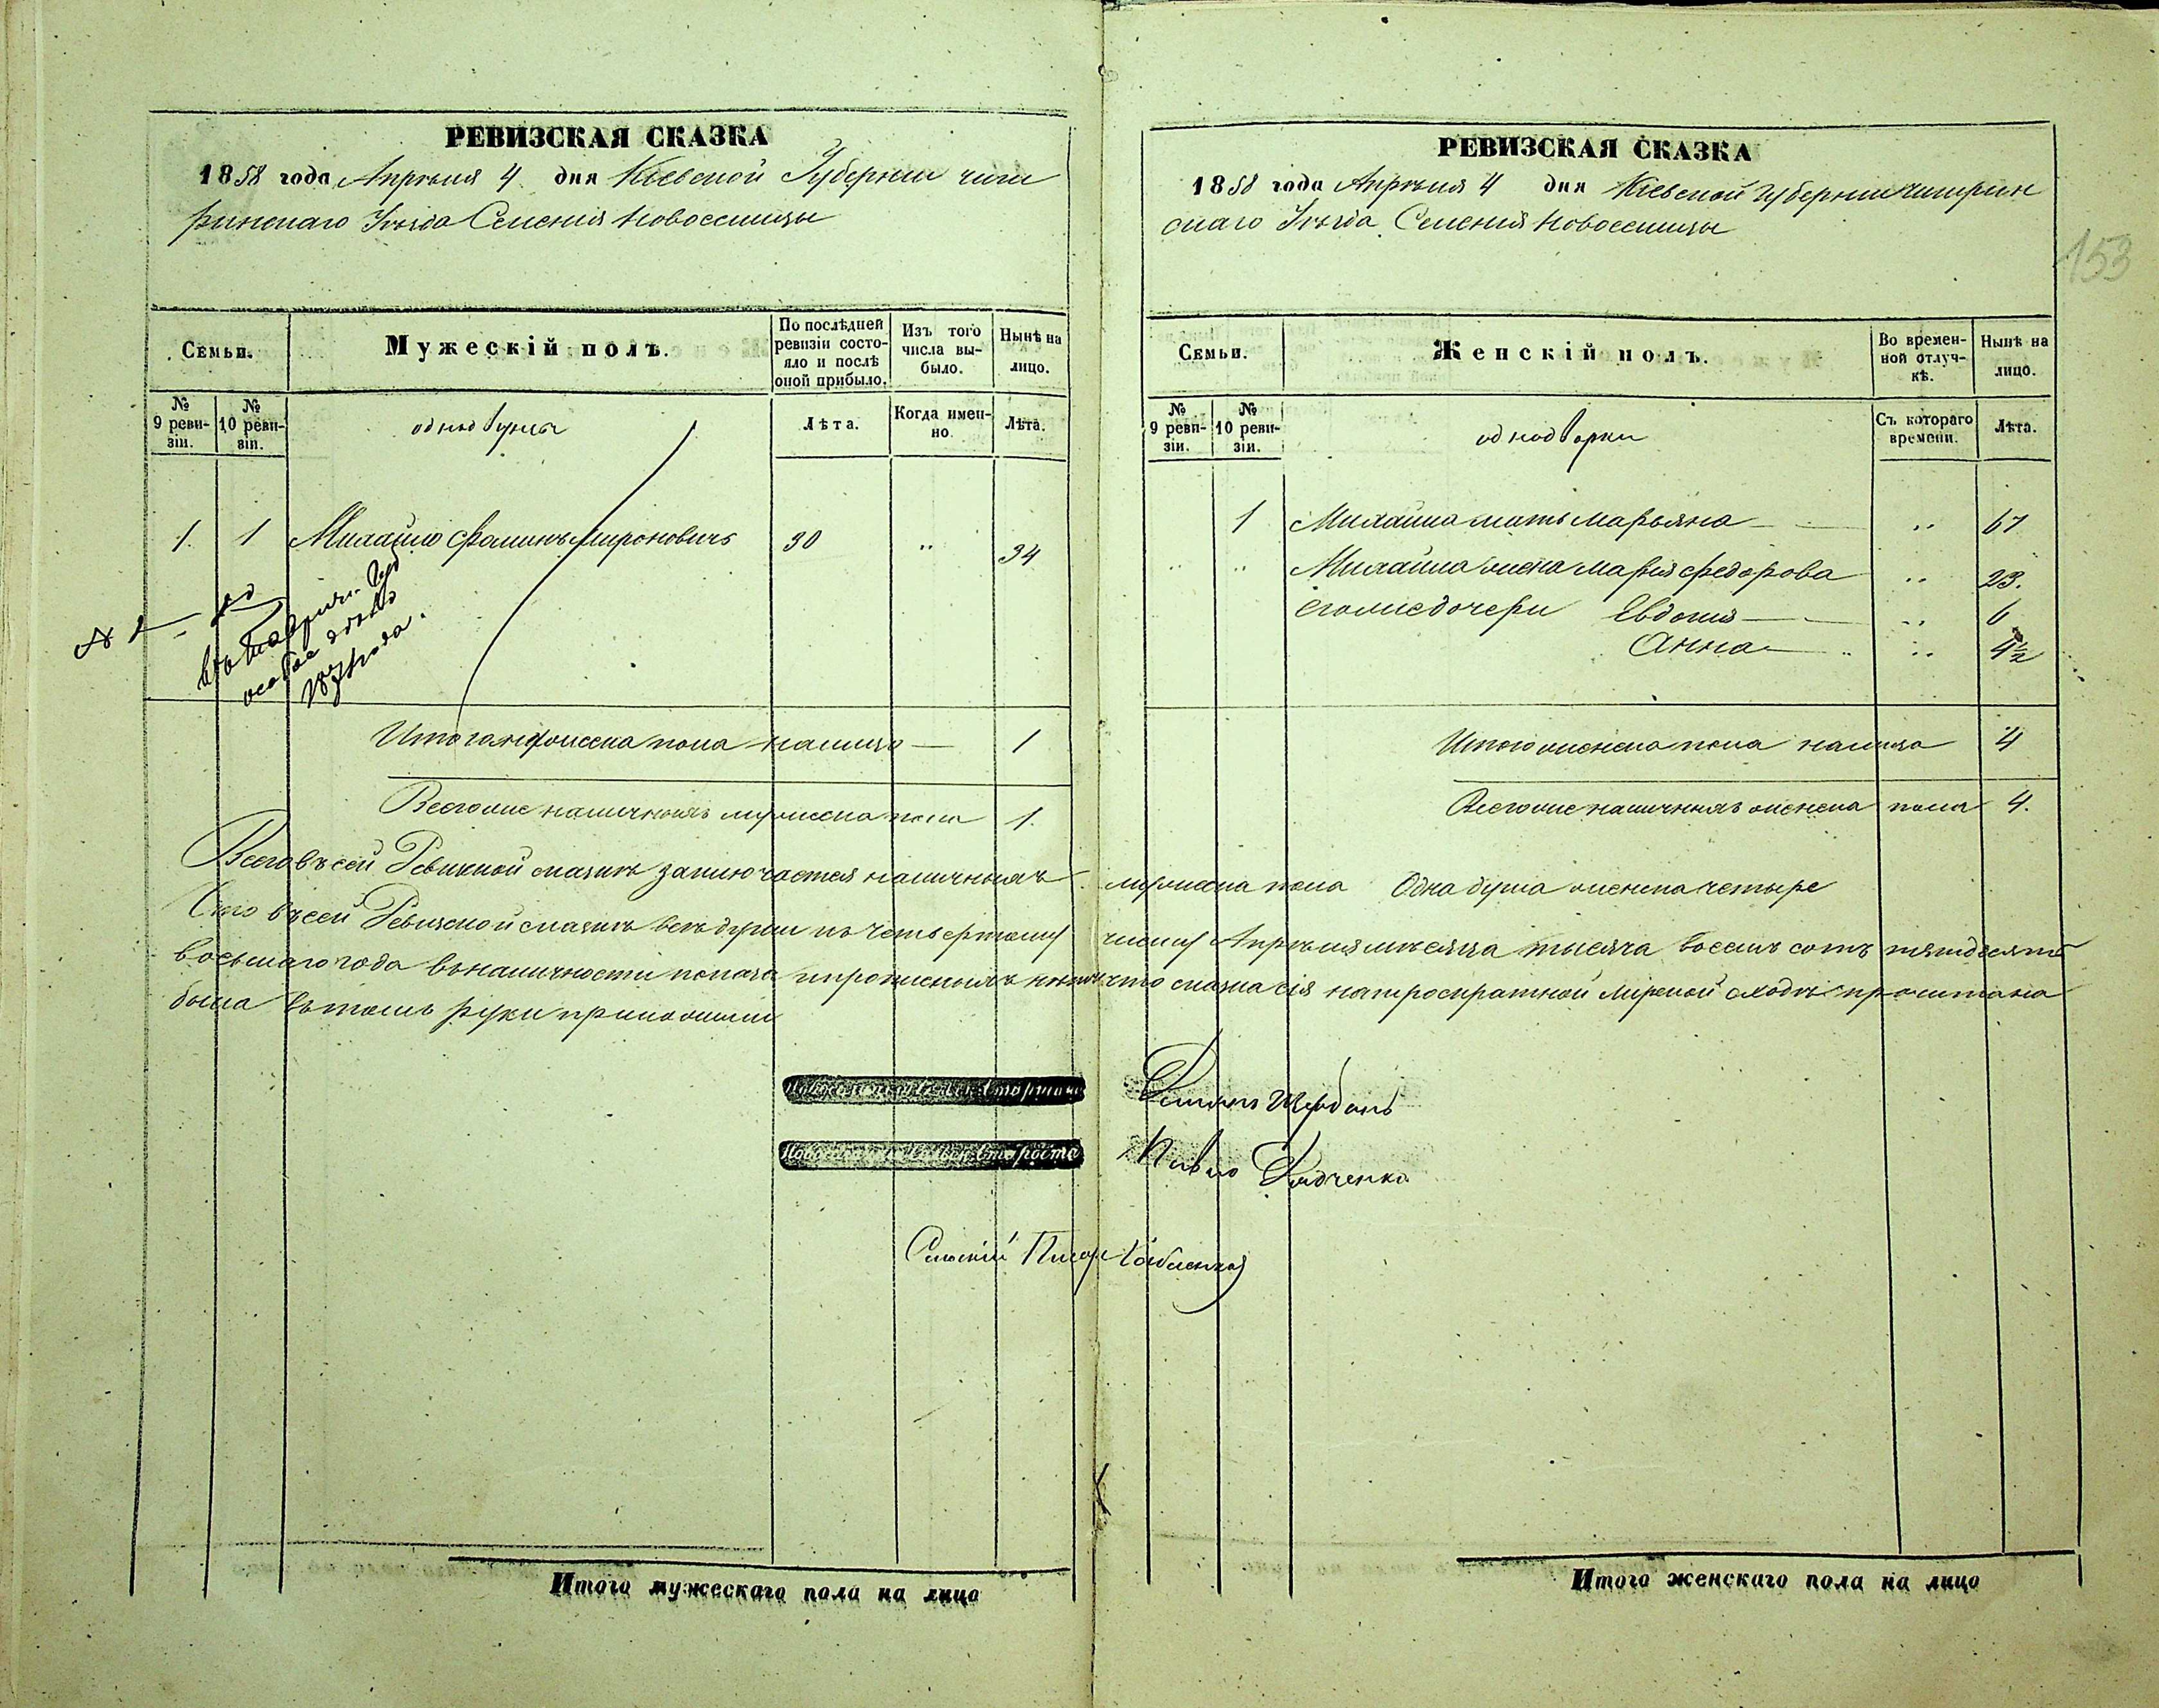 РЕВИЗСКАЯ СКАЗКА
1858 года Апрѣля 4 дня Кіевской Губерніи чиги
ринскаго Уѣзда Селенія Новоселицы
Семьи.
Мужескій полъ.
По послѣдней ревизіи состояло и послѣ оной прибыло.
Изъ того числа выбыло.
Нынѣ на лицо.
№ 9 ревизіи.
№ 10 ревизіи.
однодворцы
Лѣта.
Когда именно.
Лѣта.
1. 1 Михайло Фоминъ Мироновичъ 30 " 34
Итого мужеска пола налицо — 1
Всегоже наличныхъ мужеска пола 1.
РЕВИЗСКАЯ СКАЗКА
1858 года Апрѣля 4 дня Кіевской губерніи чигирин
скаго Уѣзда Селенія Новоселицы
153
Семьи.
Женскій полъ.
Во временной отлучкѣ.
Нынѣ на лицо.
№ 9 ревизіи.
№ 10 ревизіи.
однодворки
Съ котораго времени.
Лѣта.
1 Михайла мать Марьяна — " 67
" " Михайла жена Марія Федорова " 23.
егожедочери Евдокія — " 6
Анна — " 4½
Итого женска пола налицо 4
Всегоже наличныхъ женска пола 4.
Всего въ сей Ревизкой сказкѣ заключается наличныхъ мужеска пола Одна душа женска четыре
въсей Ревизской сказкѣ всѣ души къ четвертому числу Апрѣля мѣсяца тысяча восемь сотъ пятдесятъ
восьмаго года въналичности показа что сказка сія на мірской сходкѣ прочитана
была вътомъ руки приложили
Старшина
Демьянъ Щербань
Староста
Павло
Сельскій Писарь
Итого мужескаго пола на лицо
Итого женскаго пола на лицо